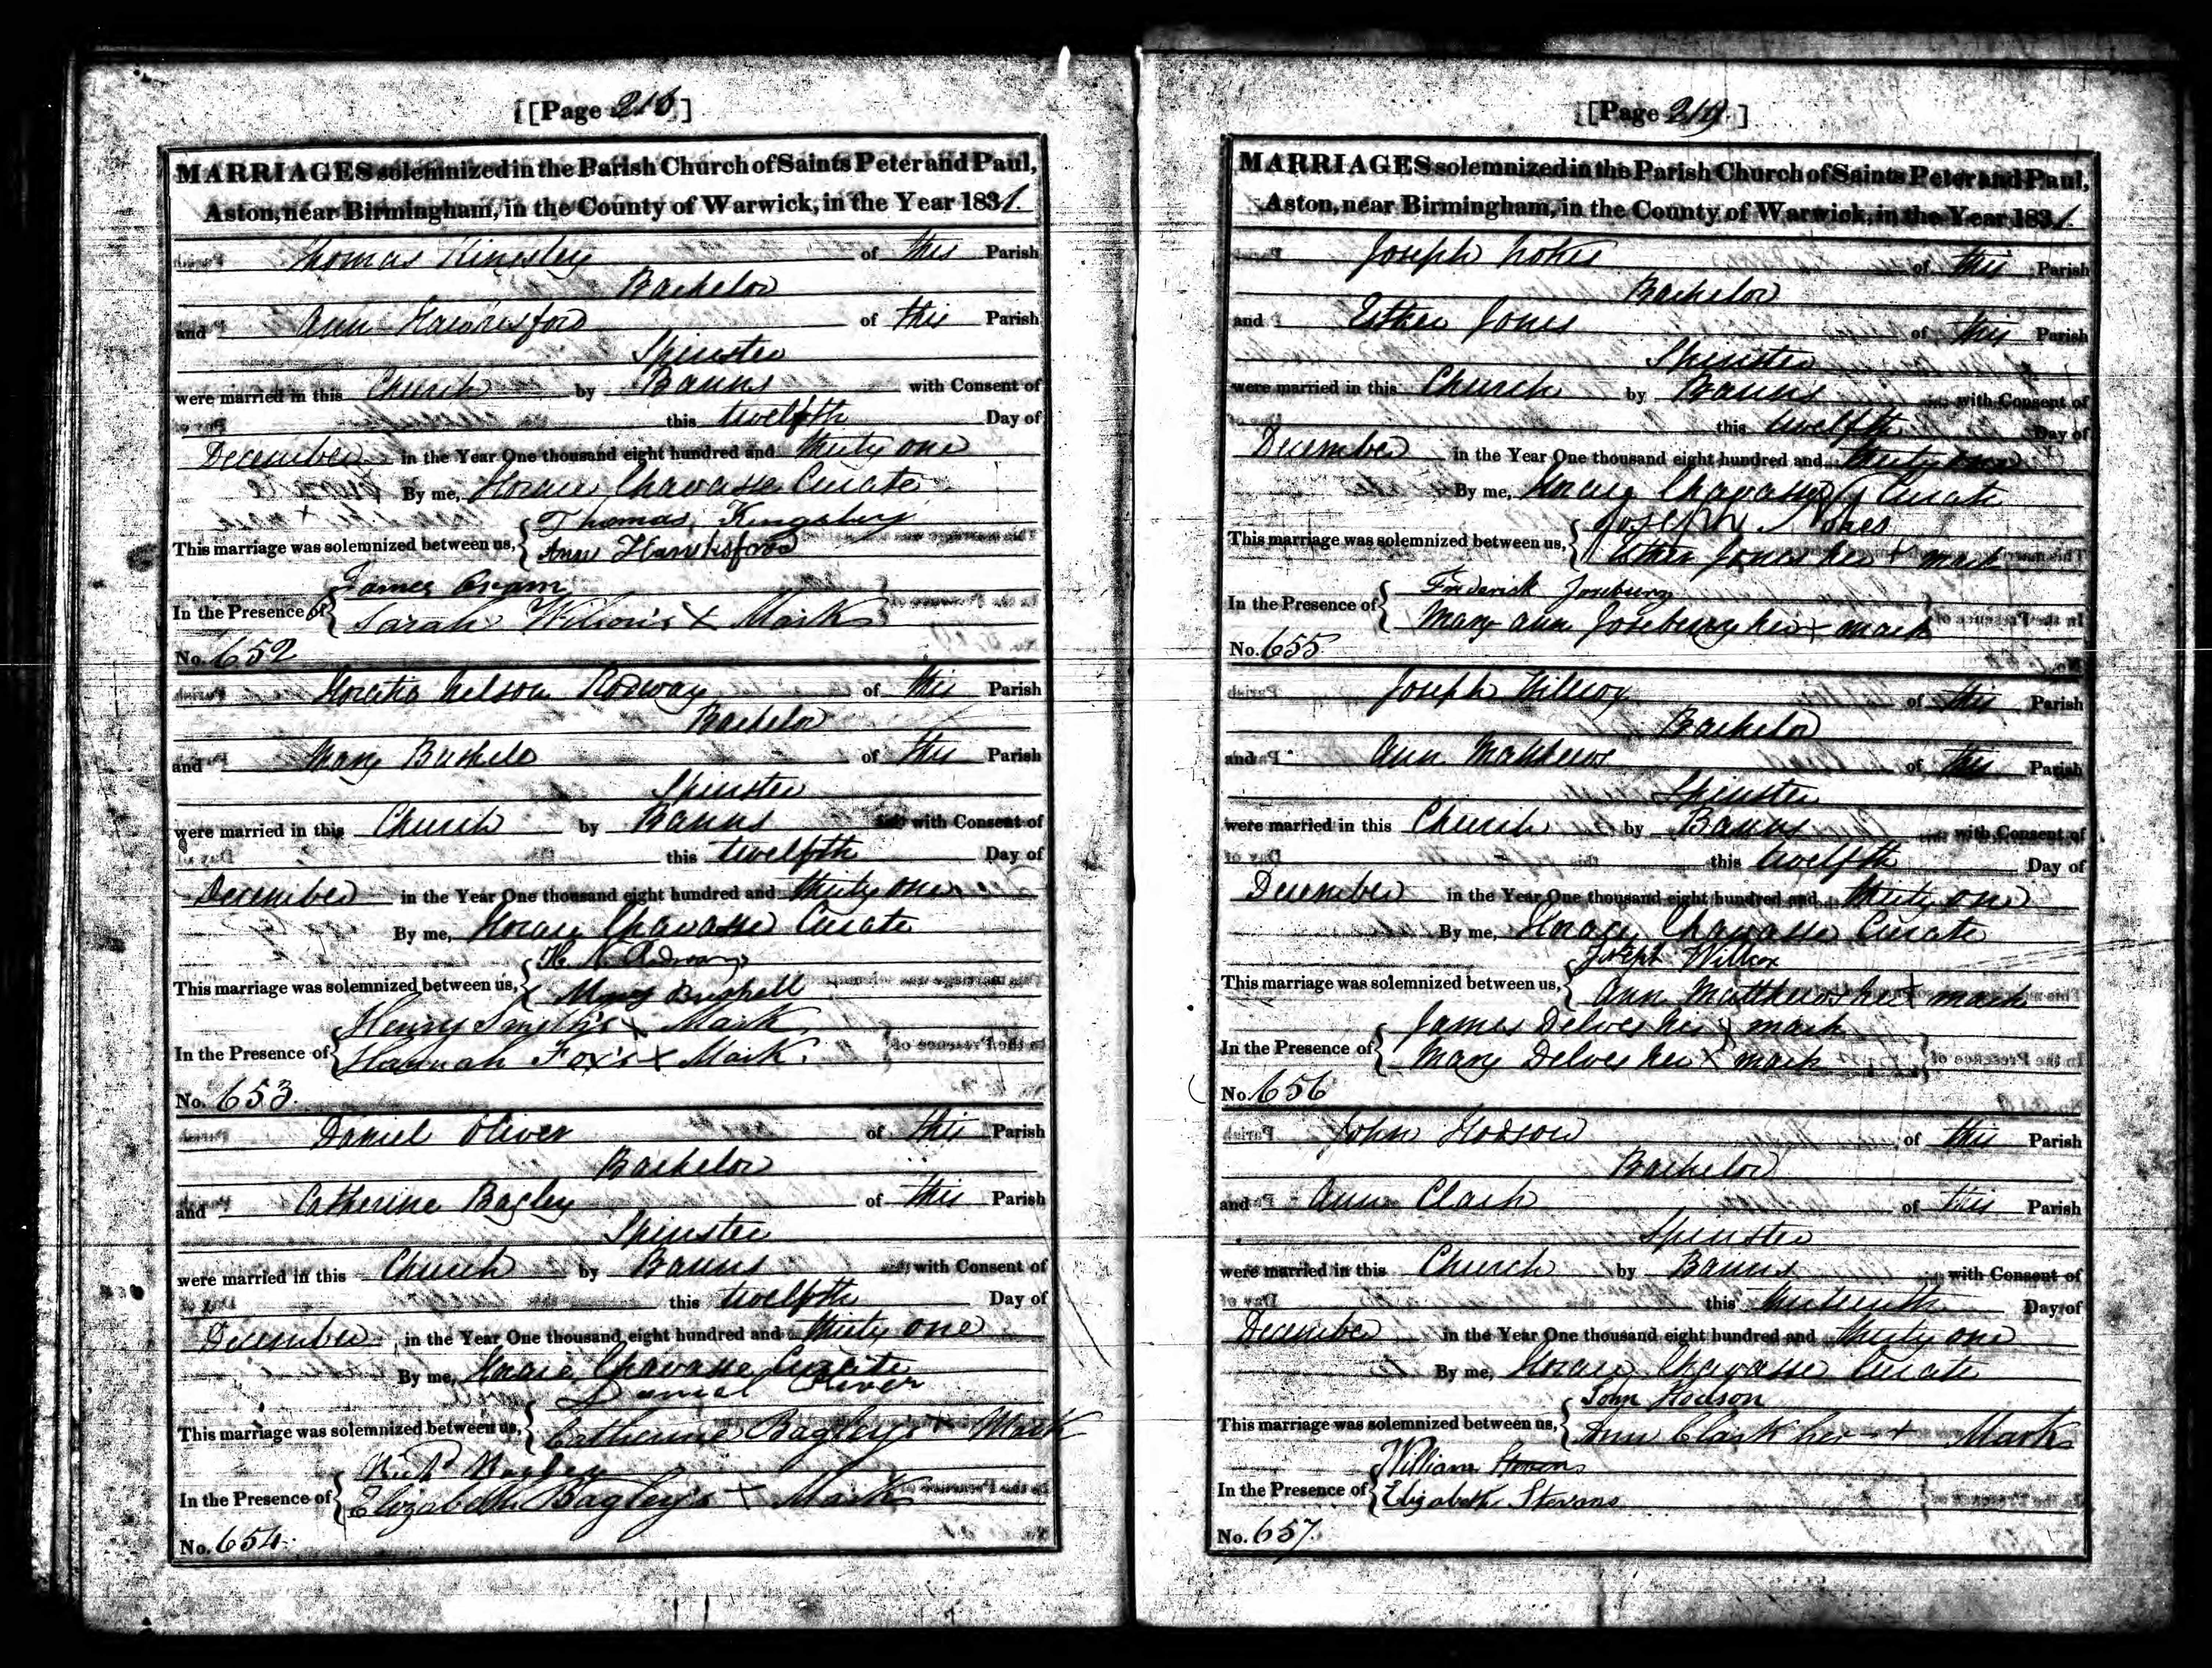 [Page 218]
MARRIAGES solemnized in the Parish Church of Saints Peter and Paul,
Aston, near Birmingham, in the County of Warwick, in the Year 1831.
Thomas Kingsley of this Parish
Bachelor
and Ann of this Parish
Spinster
were married in this Church by Banns with Consent of
this twelfth Day of
December in the Year One thousand eight hundred and thirty one
By me, Horace Chavasse Curate
This marriage was solemnized between us, { Thomas Kingsbury
Ann Hanksford
In the Presence of { James Oram
Sarah Wilson's X Mark
No. 652
Horatio Nelson Rodway of this Parish
Bachelor
and Mary Bushell of this Parish
Spinster
were married in this Church by Banns with Consent of
this twelfth Day of
December in the Year One thousand eight hundred and thirty one
By me, Horace Chavasse Curate
This marriage was solemnized between us, { H. N. Rodway
Mary Bushell
In the Presence of { Henry Smith's X Mark
Hannah Fox's X Mark.
No. 653.
Daniel Oliver of this Parish
Bachelor
and Catherine Bagley of this Parish
Spinster
were married in this Church by Banns with Consent of
this twelfth Day of
December in the Year One thousand eight hundred and thirty one
By me, Horace Chavasse Curate
This marriage was solemnized between us, { Daniel Oliver
Catherine Bagley's + Mark
In the Presence of {
Elizabeth Bagley's + Mark
No. 654
[Page 219.]
MARRIAGES solemnized in the Parish Church of Saints Peter and Paul,
Aston, near Birmingham, in the County of Warwick, in the Year 1831.
Joseph Nokes of this Parish
Bachelor
and Esther Jones of this Parish
Spinster
were married in this Church by Banns with Consent of
this twelfth Day of
December in the Year One thousand eight hundred and thirty one
By me, Horace Chavasse Curate
This marriage was solemnized between us, { Joseph Nokes
Esther Jones her + mark
In the Presence of { Frederick Joseburg
Mary Ann Josebury her + mark
No. 655
Joseph Willcox of this Parish
Bachelor
and Ann Matthews of this Parish
Spinster
were married in this Church by Banns with Consent of
this twelfth Day of
December in the Year One thousand eight hundred and thirty one
By me, Horace Chavasse Curate
This marriage was solemnized between us, { Joseph Willcox
Ann Matthews her + mark
In the Presence of { James Delves his X mark
Mary Delves her X mark
No. 656
John Hodson of this Parish
Bachelor
and Ann Clark of this Parish
Spinster
were married in this Church by Banns with Consent of
this thirteenth Day of
December in the Year One thousand eight hundred and thirty one
By me, Horace Chavasse Curate
This marriage was solemnized between us, { John Hodson
Ann Clark her + Mark
In the Presence of { William
Elizabeth Stevens
No. 657.